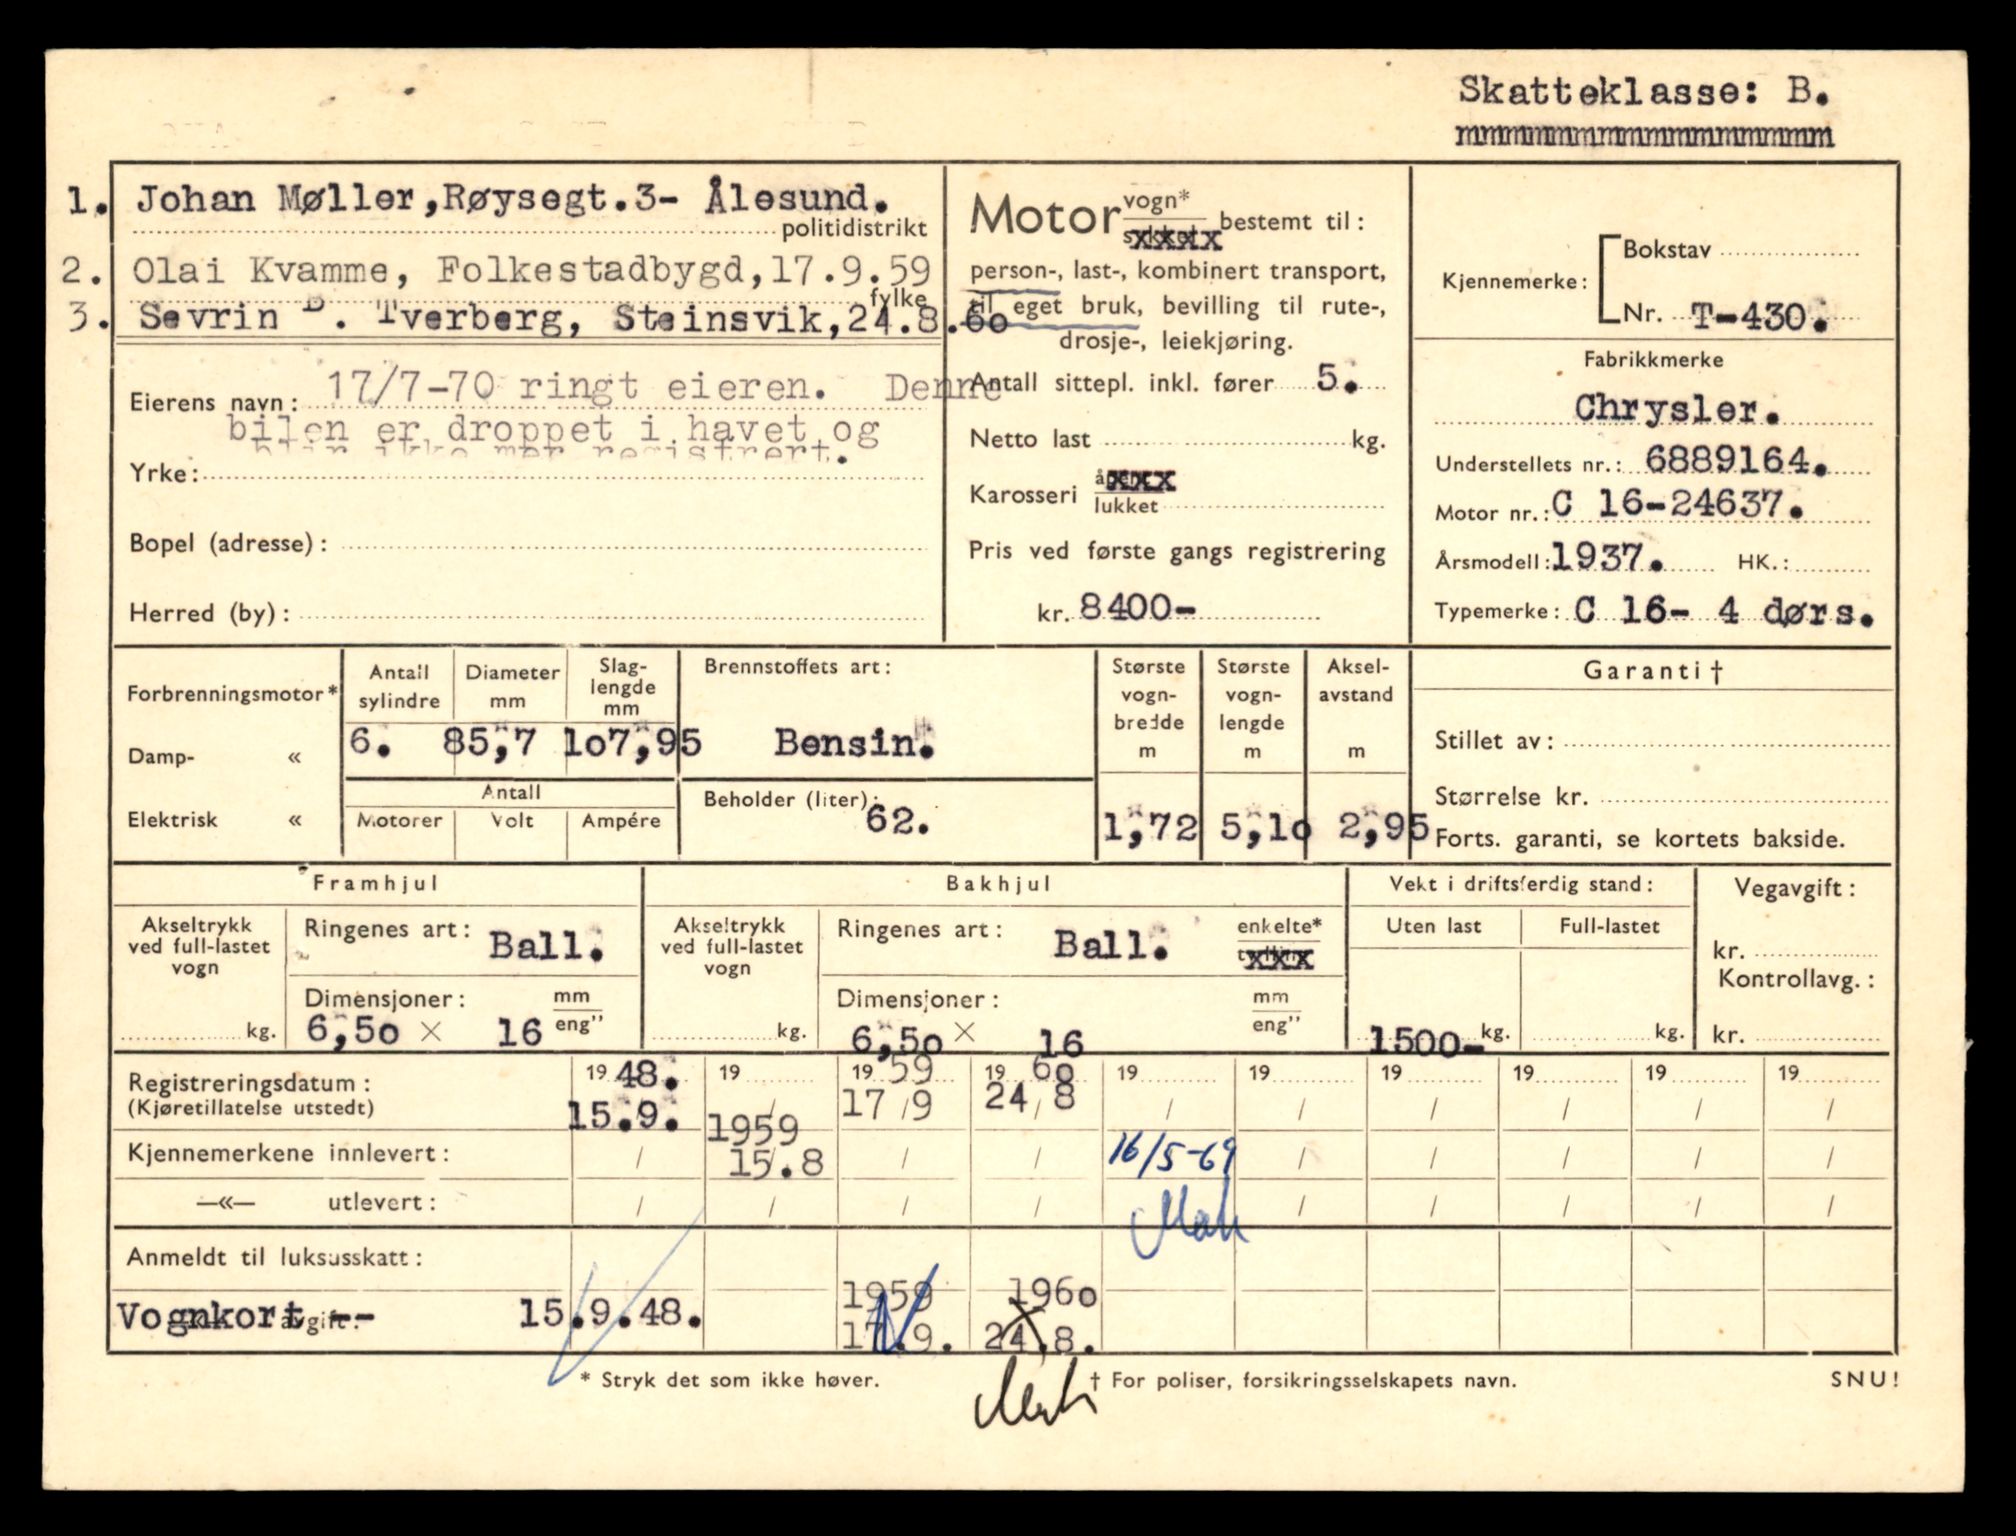 Skatteklasse: B.
mmmmmmmmmmmmmmmmmm
1. Johan Møller, Røysegt.3- Ålesund.
politidistrikt
2. Olai Kvamme, Folkestadbygd, 17.9.59
fylke
3. Sevrin B. Tverberg, Steinsvik, 24.8.60
Eierens navn: 17/7-70 ringt eieren. Denne
bilen er droppet i havet og
blir ikke mer registrert.
Yrke:
Bopel (adresse):
Herred (by):
Motor vogn* bestemt til:
xxxx
person-, last-, kombinert transport,
til eget bruk, bevilling til rute-,
drosje-, leiekjøring.
Antall sittepl. inkl. fører 5.
Netto last kg.
Karosseri xxxx
lukket
Pris ved første gangs registrering
kr. 8400-
Kjennemerke: Bokstav
Nr. T-430.
Fabrikkmerke
Chrysler.
Understellets nr.: 6889164.
Motor nr.: C 16-24637.
Årsmodell: 1937. HK.:
Typemerke: C 16- 4 dørs.
Forbrenningsmotor*
Damp- «
Elektrisk «
Antall sylindre
Diameter mm
Slag-lengde mm
6. 85,7 107,95
Antall
Motorer Volt Ampére
Brennstoffets art:
Bensin.
Beholder (liter): 62.
Største vogn-bredde m
Største vogn-lengde m
Aksel-avstand m
1,72 5,10 2,95
Garanti †
Stillet av:
Størrelse kr.
Forts. garanti, se kortets bakside.
Framhjul
Akseltrykk ved full-lastet vogn
kg.
Ringenes art: Ball.
Dimensjoner: mm
6,50 × 16 eng"
Bakhjul
Akseltrykk ved full-lastet vogn
kg.
Ringenes art: Ball. enkelte*
xxxx
Dimensjoner: mm
6,50 × 16 eng"
Vekt i driftsferdig stand:
Uten last Full-lastet
1500- kg. kg.
Vegavgift:
kr.
Kontrollavg.:
kr.
Registreringsdatum: 19 48. 19 19 59 19 60 19 19 19 19 19 19
(Kjøretillatelse utstedt) 15.9. / 17/9 24/8 / / / / / /
Kjennemerkene innlevert: / 1959 15.8 / / 16/5-69 / / / / /
—«— utlevert: / / / / / / / / /
Anmeldt til luksusskatt:
1959 1960
Vognkort -- avgift: 15.9.48. 17.9. 24.8.
* Stryk det som ikke høver.
† For poliser, forsikringsselskapets navn.
SNU!